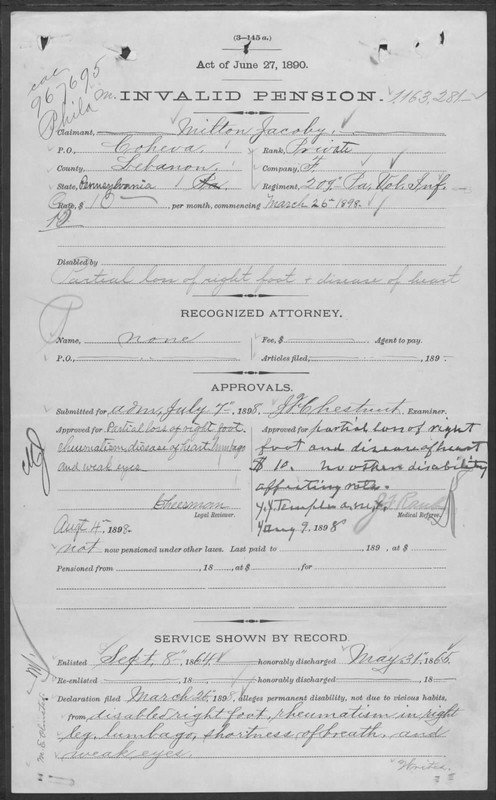 (3—145 a.)
Act of June 27, 1890.
967695
Phila
INVALID PENSION. 1163,281
Claimant, Milton Jacoby,
P.O., Cokeva. Rank, Private
County, Lebanon. Company, F.
State, Pennsylvania Pa. Regiment, 209" Pa. Vol. Inf.
Rate, $ 10 , per month, commencing March 25 1898.
12
Disabled by
Partial loss of right foot & disease of heart
RECOGNIZED ATTORNEY.
Name, none Fee, $ Agent to pay.
P.O., Articles filed, 189 .
APPROVALS.
Submitted for adm, July 7" 1898, J.F. Chestnut, Examiner.
Approved for Partial loss of right foot
rheumatism, disease of heart, lumbago
and weak eyes
Cheesman
Legal Reviewer.
Augt 4" 1898.
Approved for partial loss of right
foot and disease of heart
$ 10. No other disability
affecting rate.
Medical Referee.
Aug 9. 1898
not now pensioned under other laws. Last paid to , 189 , at $
Pensioned from , 18 , at $ , for
SERVICE SHOWN BY RECORD.
Enlisted Sept. 8" 1864, honorably discharged May 31" 1865.
Re-enlisted , 18 , honorably discharged , 18 .
Declaration filed March 25" 1898, alleges permanent disability, not due to vicious habits,
from disabled right foot, rheumatism in right
leg, lumbago, shortness of breath, and
weak eyes.
Writes.